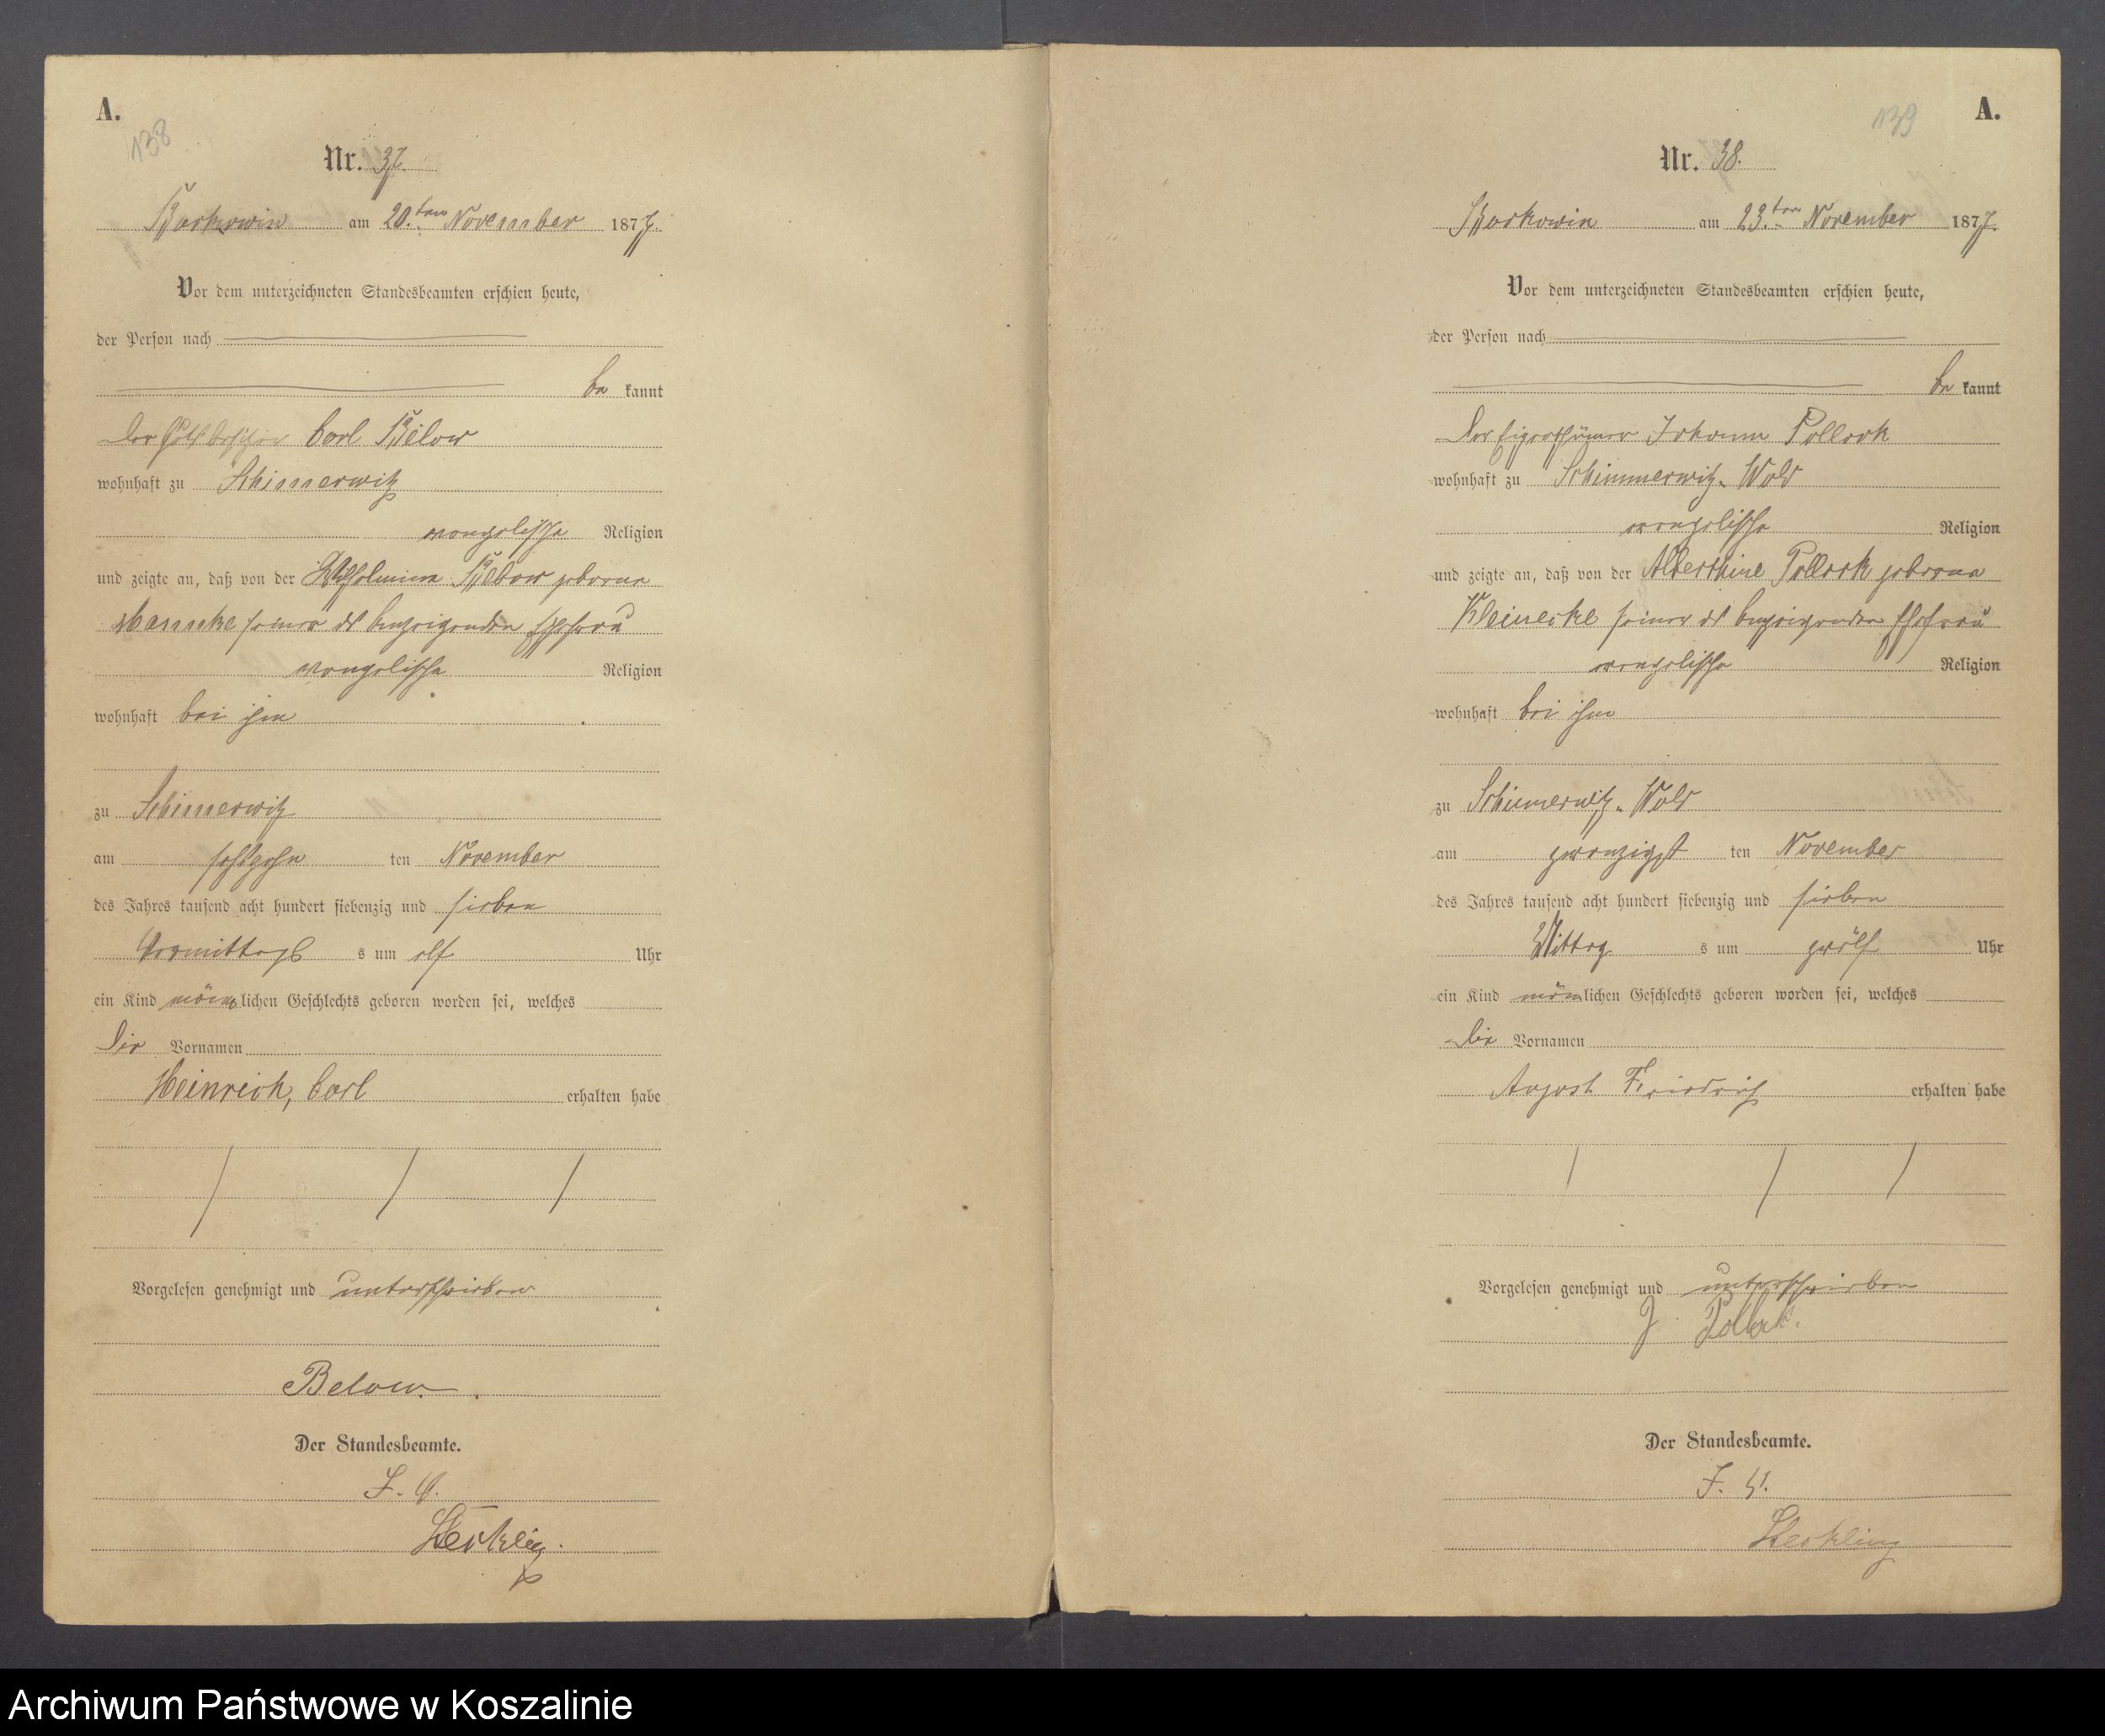 A.
138
Nr. 37.
Borkowin am 20.ten November 1877.
Vor dem unterzeichneten Standesbeamten erschien heute,
der Person nach
be kannt
der Carl Below
wohnhaft zu Schimerwitz
evangelische Religion
und zeigte an, daß von der Wilhelmine Below geborene
seiner des Anzeigenden Ehefrau
evangelische Religion
wohnhaft bei ihm
zu Schimerwitz
am sechszehn ten November
des Jahres tausend acht hundert siebenzig und sieben
Vormittags s um elf Uhr
ein Kind männlichen Geschlechts geboren worden sei, welches
die Vornamen
Heinrich, Carl erhalten habe
Vorgelesen genehmigt und unterschrieben
Below.
Der Standesbeamte.
J. V.
A.
139
Nr. 38.
Borkowin am 23.ten November 1877.
Vor dem unterzeichneten Standesbeamten erschien heute,
der Person nach
be kannt
der Eigenthümer Johann Pollock
wohnhaft zu Schimmerwitz-Wold
evangelische Religion
und zeigte an, daß von der Alberthine Pollock geborene
Kleinecke seiner des Anzeigenden Ehefrau
evangelische Religion
wohnhaft bei ihm
zu Schimerwitz-Wold
am zwanzigst ten November
des Jahres tausend acht hundert siebenzig und sieben
Mittag s um zwölf Uhr
ein Kind männlichen Geschlechts geboren worden sei, welches
die Vornamen
August Friedrich erhalten habe
Vorgelesen genehmigt und unterschrieben
J Pollock.
Der Standesbeamte.
J. V.
Archiwum Państwowe w Koszalinie